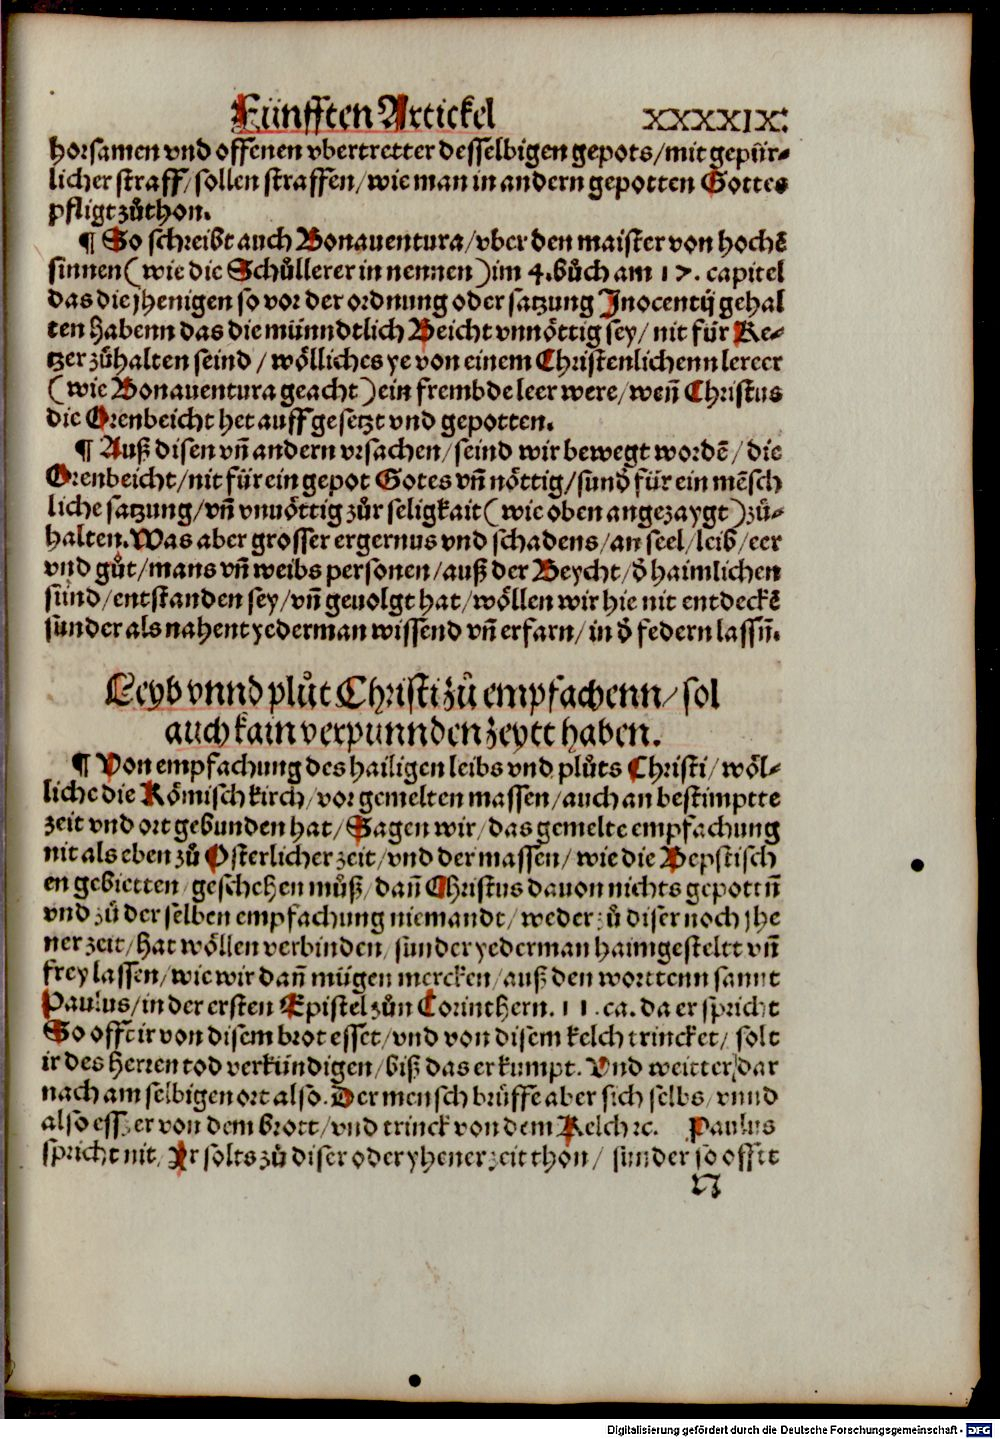 Fünfften Artickel XXXXIX.
horsamen vnd offenen vbertretter desselbigen gepots/mit gepür-
licher straff/sollen straffen/wie man in andern gepotten Gottes
pfligt zůthon.
¶ So schreibt auch Bonauentura/vber den maister von hochē
sinnen(wie die Schůllerer in nennen)im 4.bůch am 17. capitel
das die jhenigen so vor der ordnung oder satzung Inocentij gehal
ten habenn das die münndtlich Beicht vnnöttig sey/ nit für Ke-
tzer zůhalten seind / wölliches ye von einem Christenlichenn lereer
(wie Bonauentura geacht)ein frembde leer were/weñ Christus
die Orenbeicht het auff gesetzt vnd gepotten.
¶ Auß disen vñ andern vrsachen/seind wir bewegt wordē/die
Orenbeicht/nit für ein gepot Gotes vñ nöttig/sund̄ für ein mēsch
liche satzung/vñ vnuöttig zůr seligkait(wie oben angezaygt)zů-
halten.Was aber grosser ergernus vnd schadens/an seel/leib/eer
vnd gůt/mans vñ weibs personen/auß der Beycht/d̄ haimlichen
sünd/entstanden sey/vñ geuolgt hat/wöllen wir hie nit entdeckē
sunder als nahent yederman wissend vñ erfarn/in d̄ federn lassñ.
Leyb vnnd plůt Christi zů empfachenn/sol
auch kain verpunnden zeytt haben.
¶ Von empfachung des hailigen leibs vnd plůts Christi/wöl-
liche die Römisch kirch/vor gemelten massen/auch an bestimptte
zeit vnd ort gebunden hat/Sagen wir/das gemelte empfachung
nit als eben zů Osterlicher zeit/vnd der massen/wie die Bepstisch
en gebietten/geschehen můß/dañ Christus dauon nichts gepottñ
vnd zů der selben empfachung niemandt/weder zů diser noch jhe
ner zeit/hat wöllen verbinden/sunder yederman haimgesteltt vñ
frey lassen/wie wir dañ mügen mercken/auß den worttenn sannt
Paulus/in der ersten Epistel zůn Corinthern. 11.ca. da er spricht
So offt ir von disem brot esset/vnd von disem kelch trincket/ solt
ir des Herren tod verkündigen/biß das er kumpt. Vnd weitter/dar
nach am selbigen ort also.Der mensch brüffe aber sich selbs/vnnd
also ess er von dem brott/vnd trinck von dem Kelch ꝛc. Paulus
spricht nit/Ir solts zů diser oder yhener zeit thon/ sunder so offtt
N
Digitalisierung gefördert durch die Deutsche Forschungsgemeinschaft - DFG